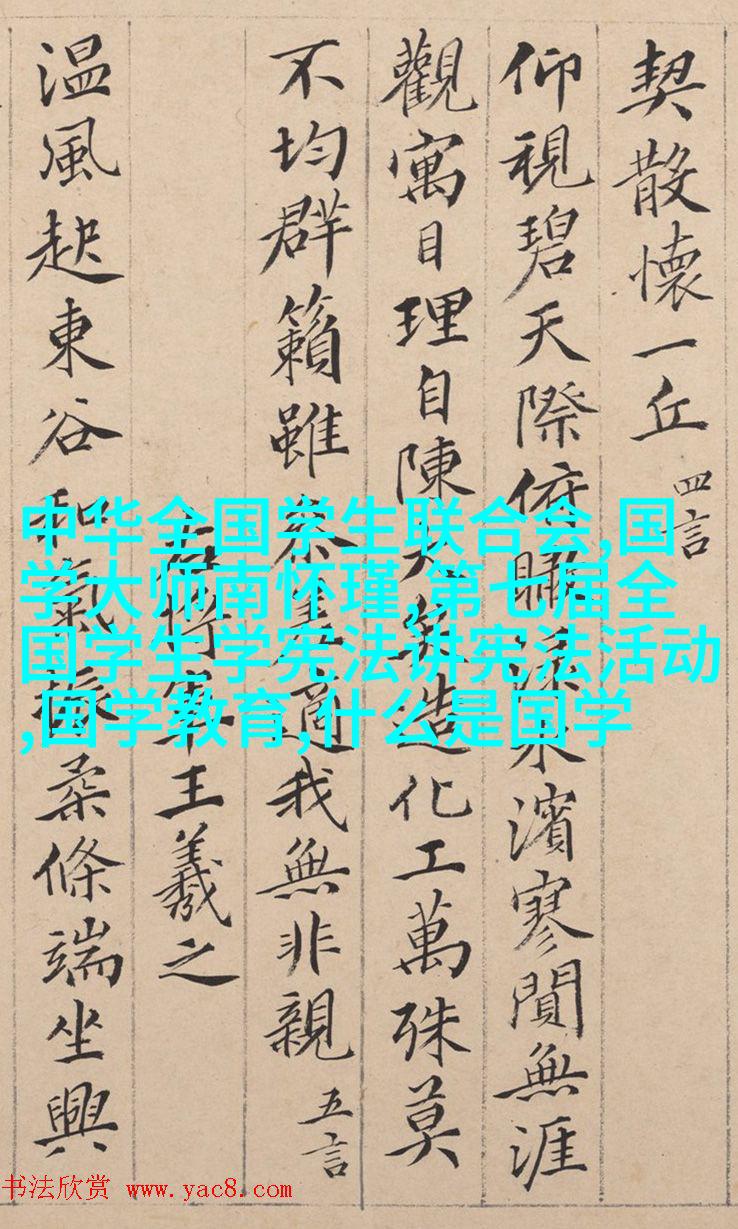 契散懷一丘 四言
仰視碧天際俯瞰淥水濱寥閴無涯
觀寓目理自陳大矣造化工萬殊莫
不均群籟雖參差適我無非親 五言
右將軍王羲之
温風起東谷和氣振柔條端坐興
中华全国学生联合会,国
学大师南怀瑾,第七届全
国学生学宪法讲宪法活动
,国学教育,什么是国学
书法欣赏 www.yac8.com